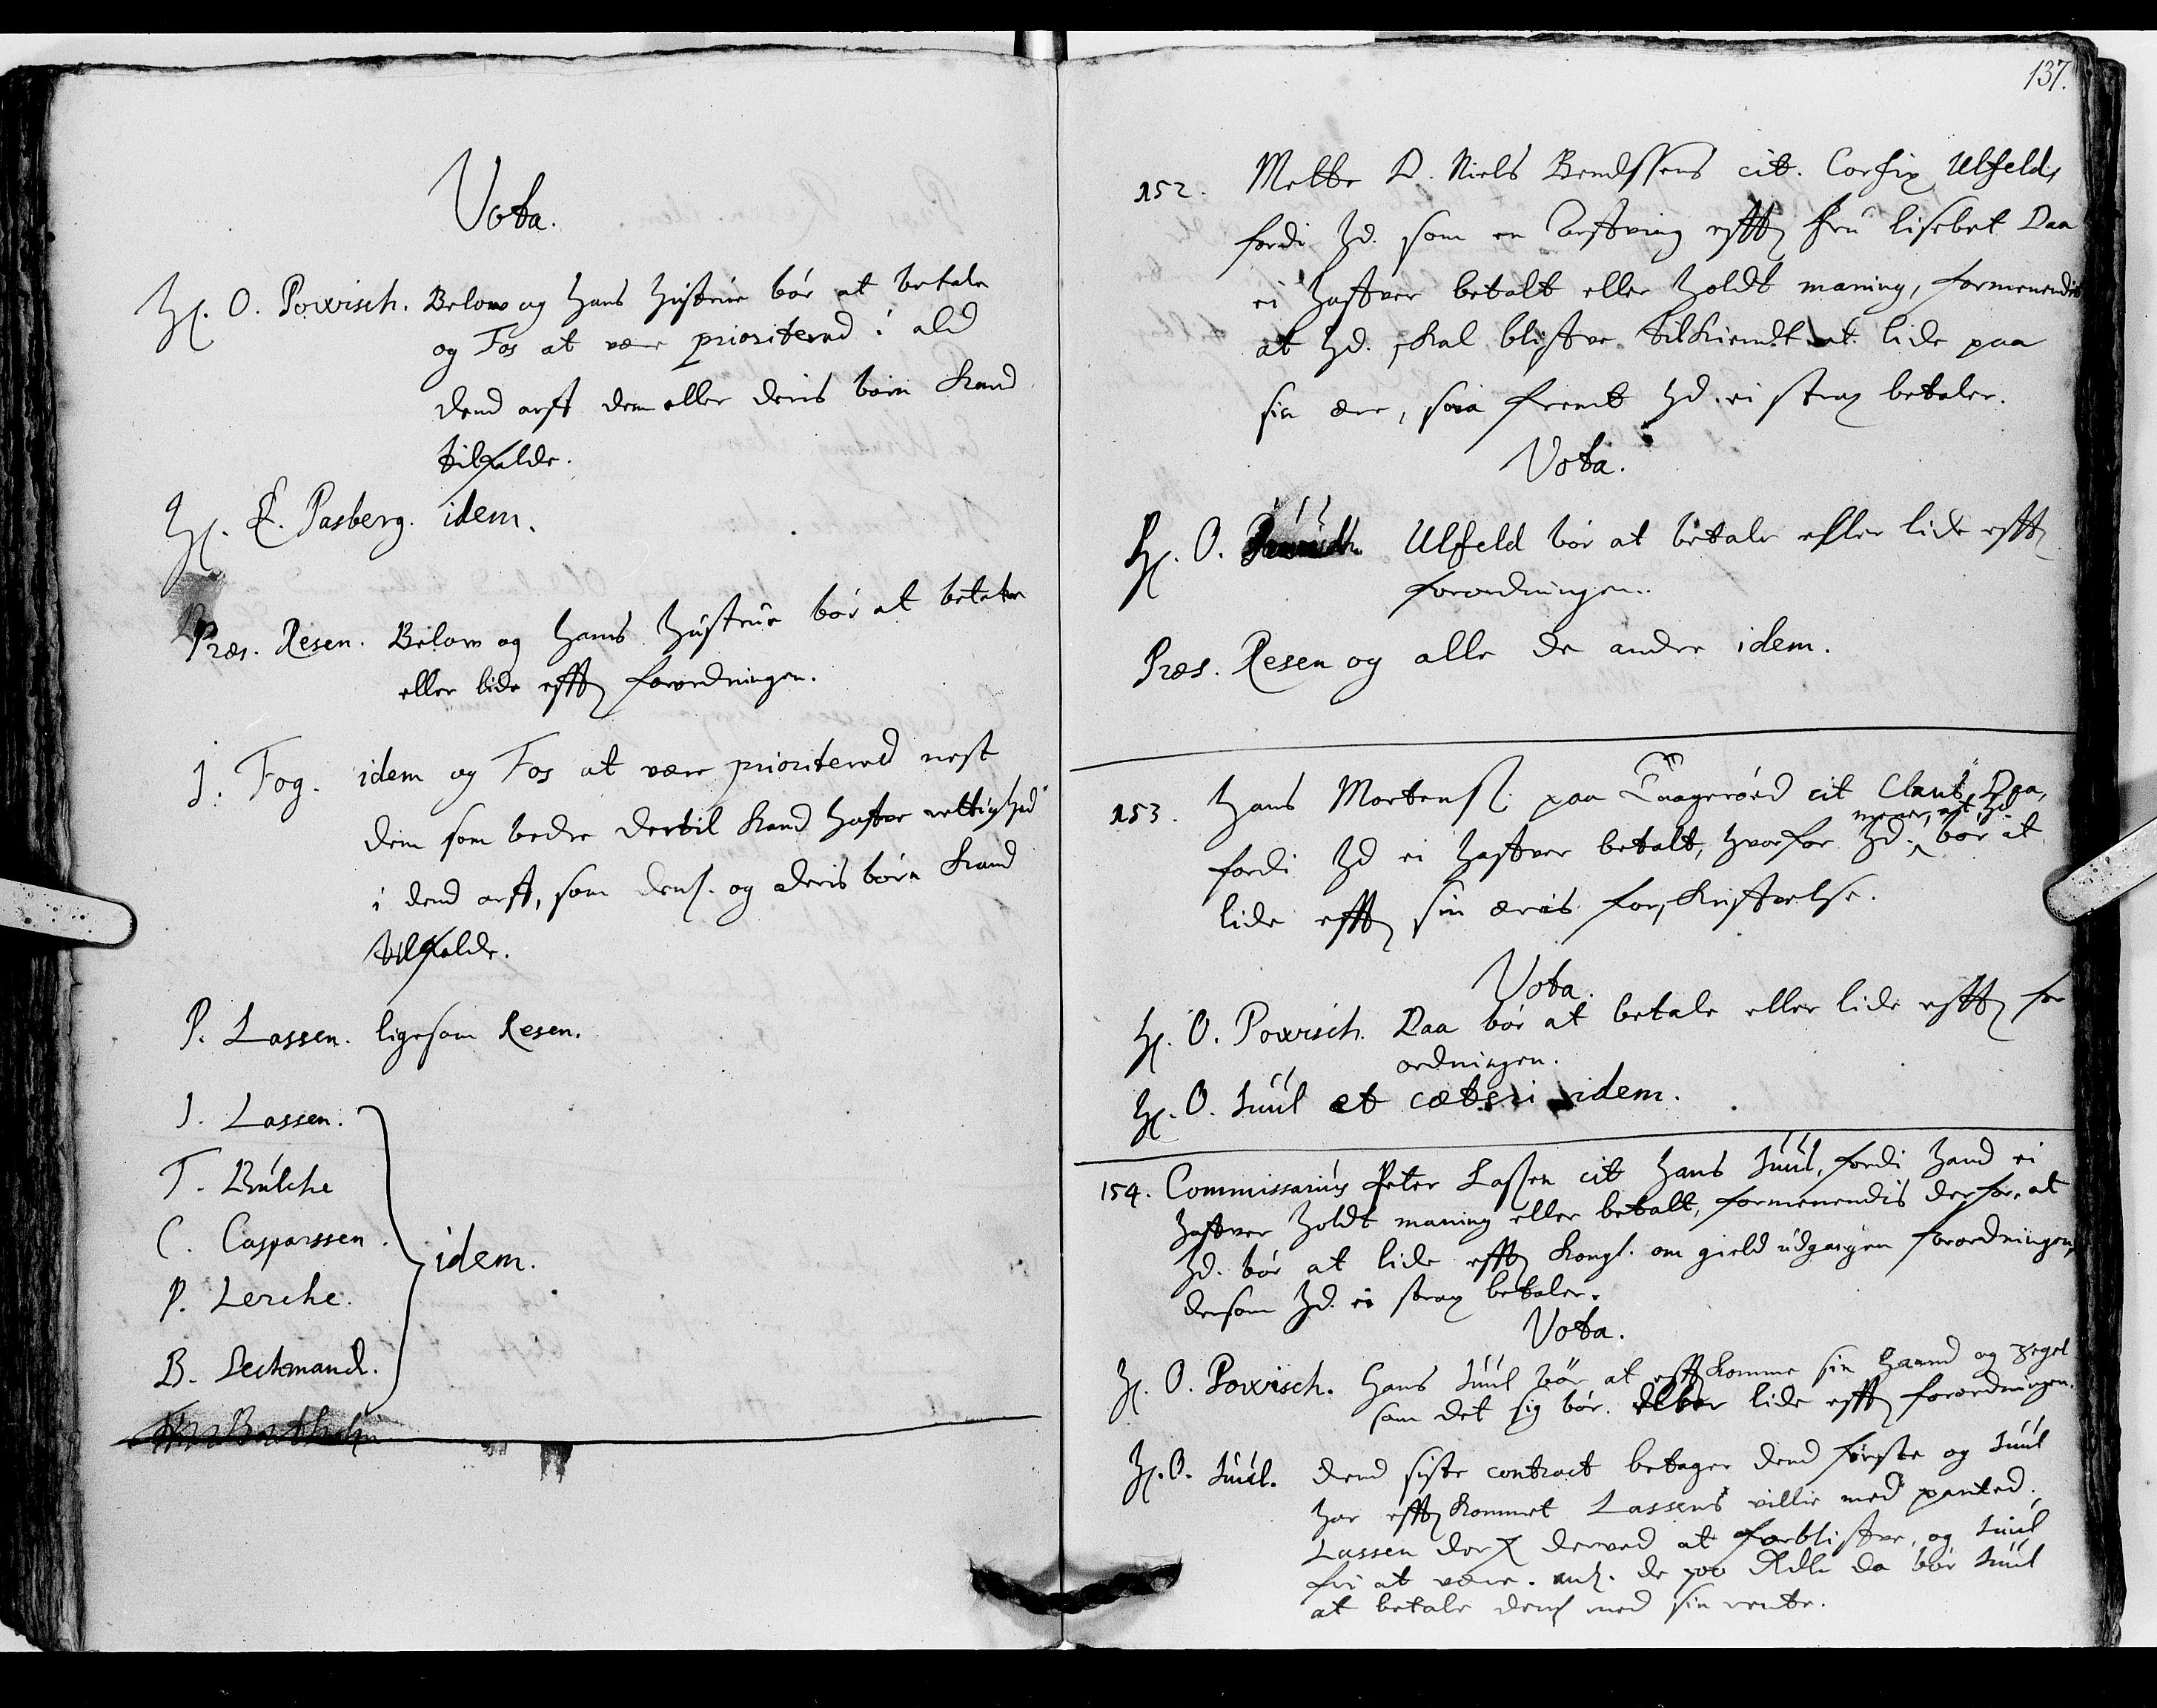 Vota.
H. O. Powisch. Below og hans hustrue bör at betale
og Fos at være prioritered i ald
dend arff dem eller deris börn kand
tilfalde.
H. E. Pasberg. idem.
Præs. Resen. Below og hans hustrue bör at betale
eller lide efft forordningen.
J. Fog. idem og Fos at være prioritered nest
dem som bedre dertil kand haffve rettighed
i dend arff, som dem. og deris börn kand
tilfalde.
P. Lassen. ligesom Resen.
J. Lassen.
T. Bülche
C. Casparssen.
idem.
P. Lerche.
B. Lechmand.
137.
152. Mette D. Niels Bendssens cit. Corfix Ulfeld,
fordi hd. som en arffving efft fru lisebet Daa
ei haffver betalt eller holdt maning, formenendis
at hd. skal bliffve tilkiendt at lide paa
sin ære, saa fremt hd. ei strax betaler.
Vota.
H. O. Ulfeld bör at betale eller lide efft
forordningen.
Præs. Resen og alle de andre idem.
153. Hans Mortens. paa cit Claus Daa,
mener, at hd.
fordi hd ei haffver betalt, hvorfor hd. bör at
lide efft sin æris forskriffvelse.
Vota.
H. O. Powisch. Daa bör at betale eller lide efft for
ordningen.
H. O. Juul et cæteri idem.
154. Commissarius Peter Lassen cit Hans Juul, fordi hand ei
haffver holdt maning eller betalt, formenendis derfor, at
hd. bör at lide efft Kongl. om gield udgangen forordningen,
dersom hd. ei strax betaler.
Vota.
H. O. Powisch. Hans Juul bör at efft komme sin haand og zegel
som det sig bör. eller lide efft forordningen.
H. O. Juul. dend siste contract betager dend förste og Juul
har efft kommet Lassens villie med panted.
Lassen der derved at forbliffve, og Juul
fri at være. de 700 Rdlr da bör Juul
at betale dem med sin rente.